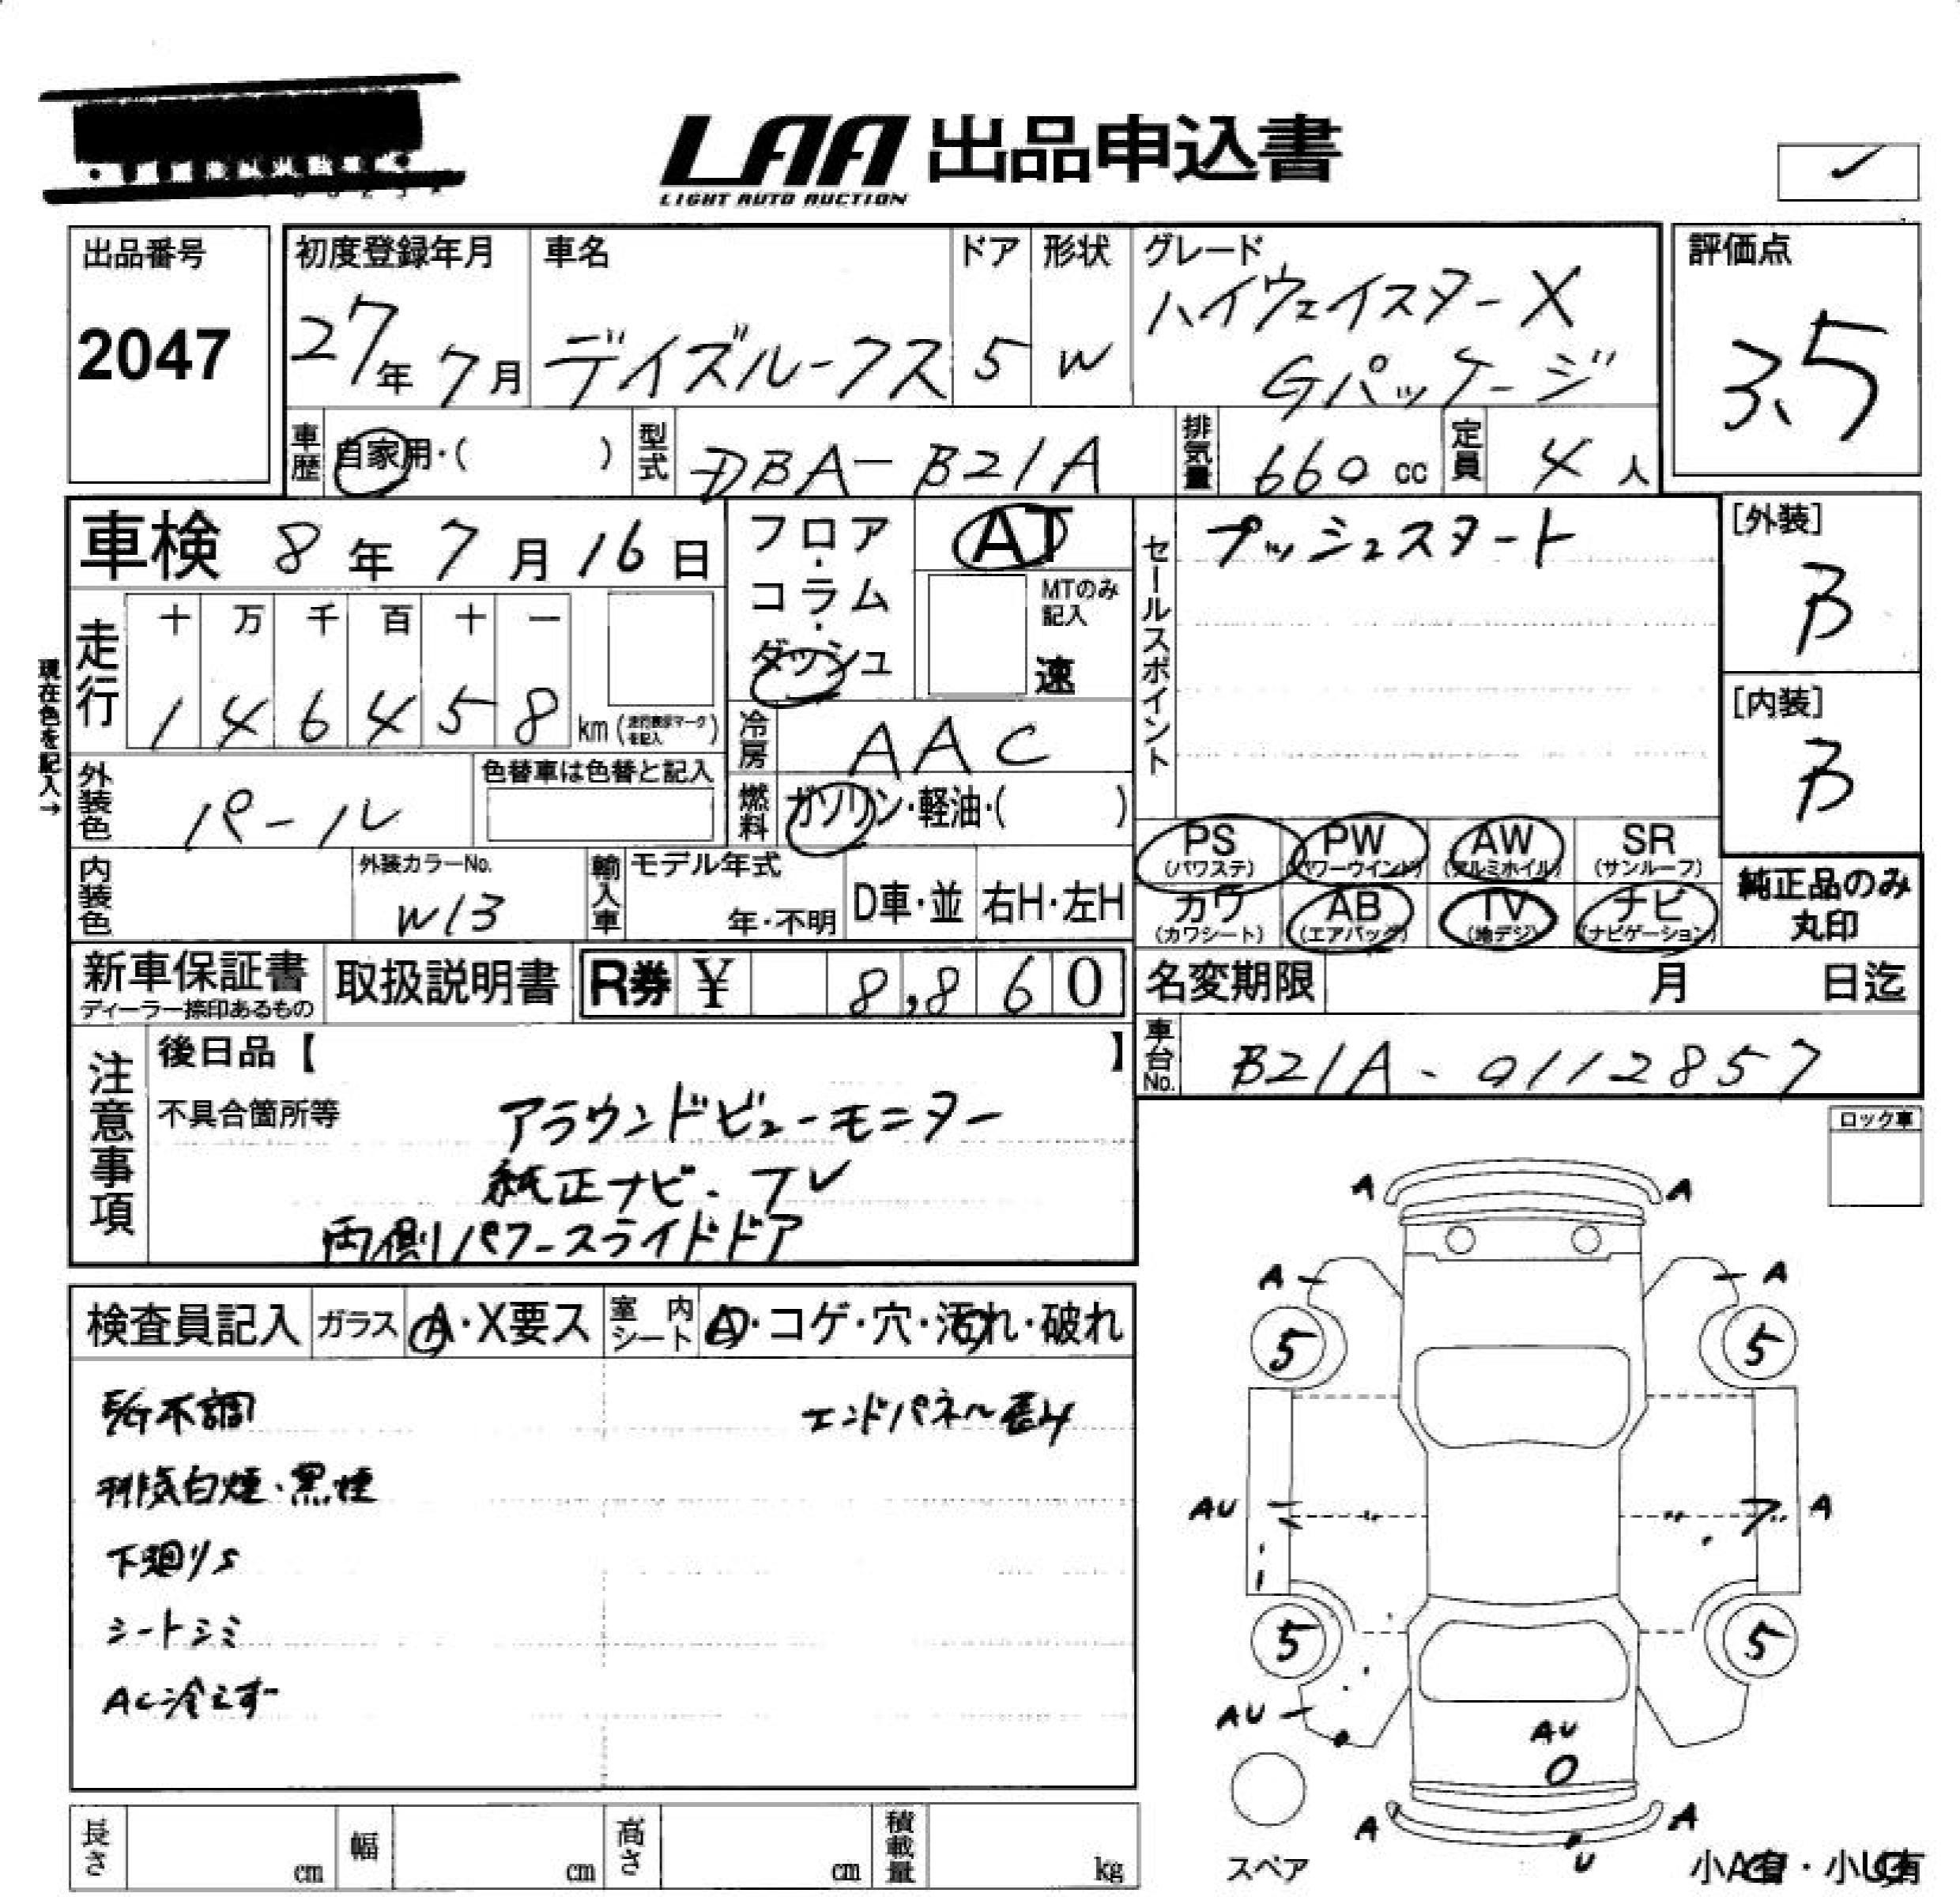 LAA 出品申込書
LIGHT AUTO AUCTION
出品番号
2047
初度登録年月
27年 7月
車名
デイズルークス
ドア
5
形状
W
グレード
ハイウェイスターX
Gパッケージ
評価点
3.5
車歴 自家用・( )
型式 DBA-B21A
排気量 660 cc
定員 4 人
車検 8年 7月 16日
フロア・コラム・ダッシュ
AT
MTのみ記入
速
セールスポイント
プッシュスタート
[外装]
B
[内装]
B
現在色を記入→
走行
十 万 千 百 十 一
1 4 6 4 5 8 km (走行表示マークを記入)
冷房 AAC
外装色 パール
色替車は色替と記入
燃料 ガソリン・軽油・( )
内装色
外装カラーNo.
W13
輸入車
モデル年式
年・不明
D車・並
右H・左H
PS (パワステ)
PW (パワーウインド)
AW (アルミホイル)
SR (サンルーフ)
カワ (カワシート)
AB (エアバッグ)
TV (地デジ)
ナビ (ナビゲーション)
純正品のみ丸印
新車保証書
ディーラー捺印あるもの
取扱説明書
R券 ¥ 8,860
名変期限 月 日迄
車台No. B21A-0112857
注意事項
後日品【 】
不具合箇所等
アラウンドビューモニター
純正ナビ・TV
両側パワースライドドア
ロック車
検査員記入
ガラス A・X要ス
室内シート A・コゲ・穴・汚れ・破れ
不調
エンドパネル
排気白煙・黒煙
下廻りS
シートシミ
AC冷えず
A A
A A
5 5
AU A
5 5
AU
AU
A A
U
スペア
小A有・小U有
長さ cm
幅 cm
高さ cm
積載量 kg